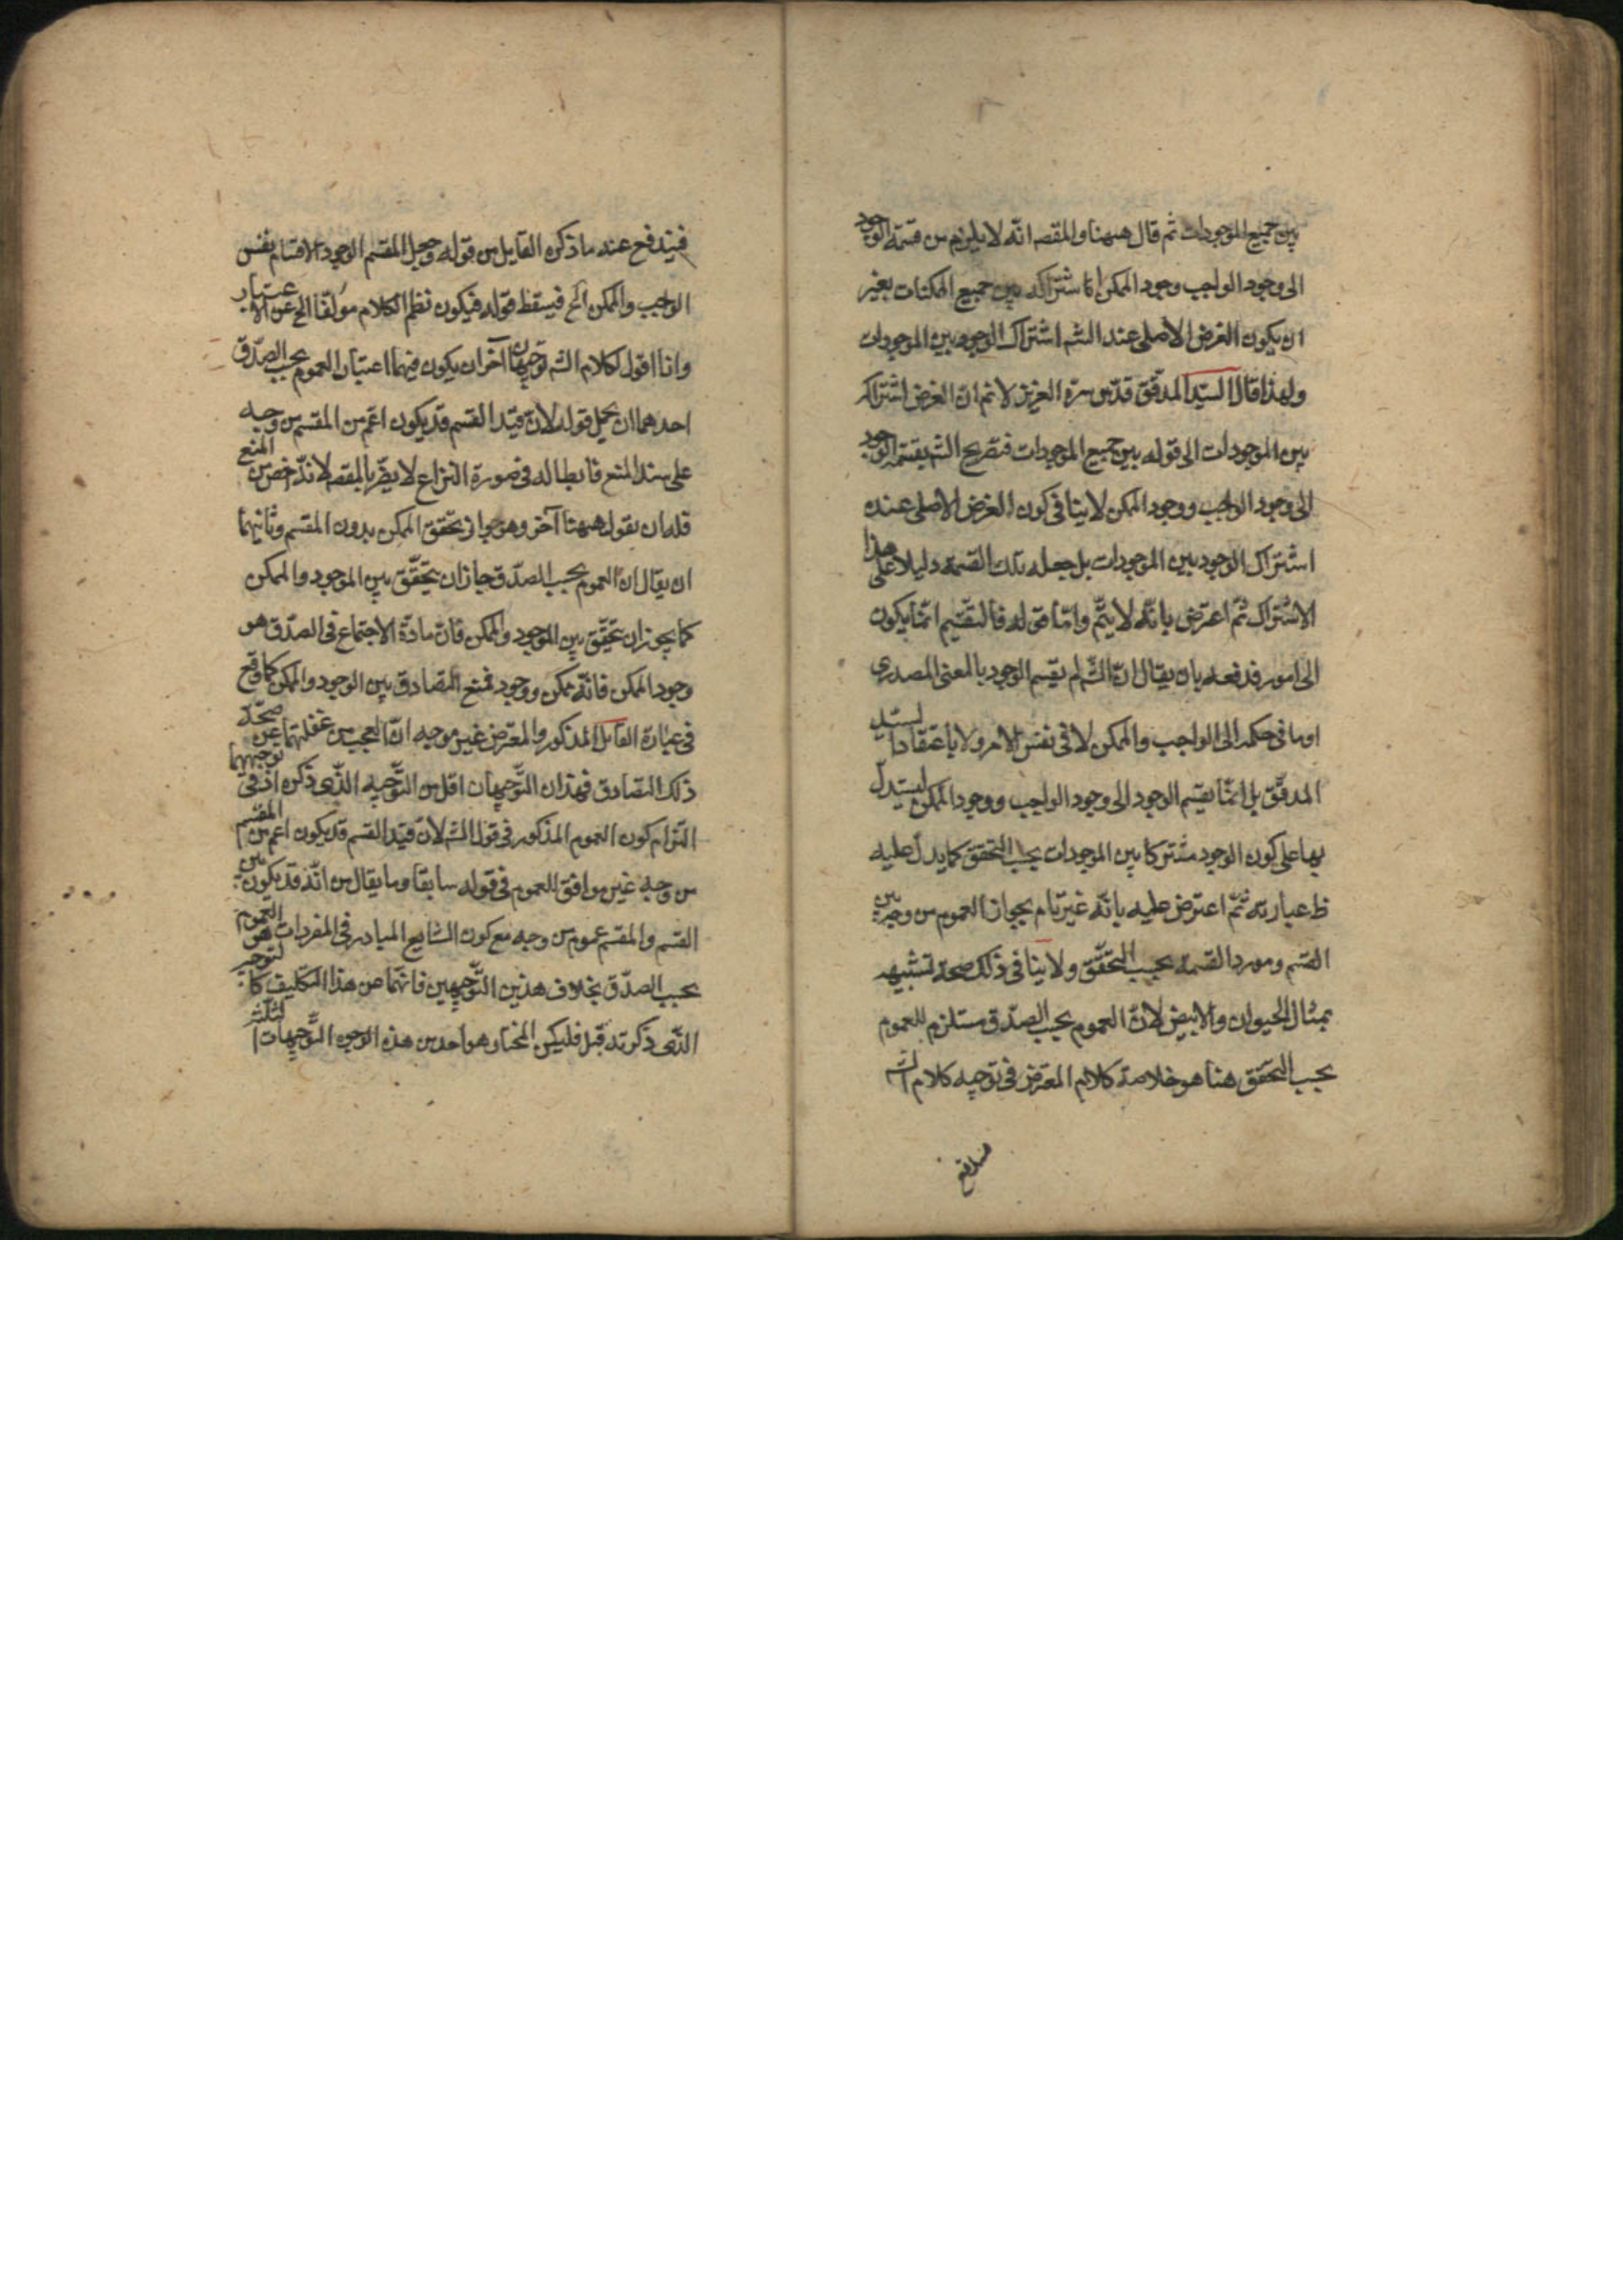 بين جميع الموجودات ثم قال ههنا والمقصه انه لا يلزم من قسمة الوجود
الى وجود الواجب وجود الممكن الا اشتراكه بين جميع الممكنات بغير
ان يكون الغرض الاصلى عند الشم اشتراك الوجود بين الموجودات
ولهذا قال السيد المدقق قدس سره العزيز لا نم ان الغرض اشتراكه
بين الموجودات الى قوله بين جميع الموجودات فتصريح الشم بقسمة الوجود
الى وجود الواجب ووجود الممكن لا ينافى كون الغرض الاصلى عنده
اشتراك الوجود بين الموجودات بل جعله تلك القسمة دليلا على هذا
الاشتراك ثم اعترض بانه لا يتم واما قوله فالتقسيم انما يكون
الى امور فدفعه بان يقال ان الشم لم يقسم الوجود بالمعنى المصدرى
او ما فى حكمه الى الواجب والممكن لا فى نفس الامر ولا باعتقاد السيد
المدقق بل انما يقسم الوجود الى وجود الواجب ووجود الممكن ليستدل
بها على كون الوجود مشتركا بين الموجودات بحسب التحقق كما يدل عليه
ظ عبارته ثم اعترض عليه بانه غير تام بجواز العموم من وجه بين
القسم ومورد القسمة بحسب التحقق ولا ينافى ذلك صحة تشبيهه
بمثال الحيوان والابيض لان العموم بحسب الصدق مستلزم للعموم
بحسب التحقق هذا هو خلاصة كلام المعترض فى توجيه كلام الشم
فيندفع عنه ما ذكره القايل من قوله وجعل المقسم الوجود الاقسام نفس
الواجب والممكن الخ فيسقط قوله فيكون نظم الكلام مؤلفا الخ عن الاعتبار
وانا اقول لكلام الشم توجيهان آخران يكون فيهما اعتبار العموم بحسب الصدق
احدهما ان يحمل قوله لان قيد القسم قد يكون اعم من المقسم من وجه
على سند المنع فابطاله فى صورة النزاع لا يضر بالمقصه لانه اخص من المنع
فله ان يقول ههنا آخر وهو جواز تحقق الممكن بدون المقسم وثانيهما
ان يقال ان العموم بحسب الصدق جاز ان يتحقق بين الموجود والممكن
كما يجوز ان يتحقق بين الوجود والممكن فان مادة الاجتماع فى الصدق هو
وجود الممكن فانه ممكن ووجود فمنع التصادق بين الوجود والممكن كما وقع
فى عبارة القايل المذكور والمعترض غير موجه ان العجب من غفلتهما عن صحة
ذلك التصادق فهذان التوجيهان اقل من التوجيه الذى ذكره اذ فى توجيههما
التزام كون العموم المذكور فى قول الشم لان قيد القسم قد يكون اعم من المقسم
من وجه غير موافق للعموم فى قوله سابقا وما يقال من انه قد يكون بين
القسم والمقسم عموم من وجه مع كون الشايع المتبادر فى المفردات هو العموم
بحسب الصدق بخلاف هذين التوجيهين فانهما عن هذا التكليف كالتوجيه
الذى ذكرته قبل فليكن المختار هو احد من هذه الوجوه التوجيهات الثلثة